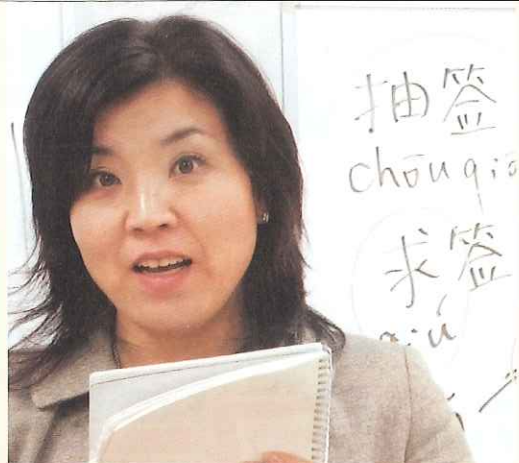 抽签
chōuqiā
求签
qiú